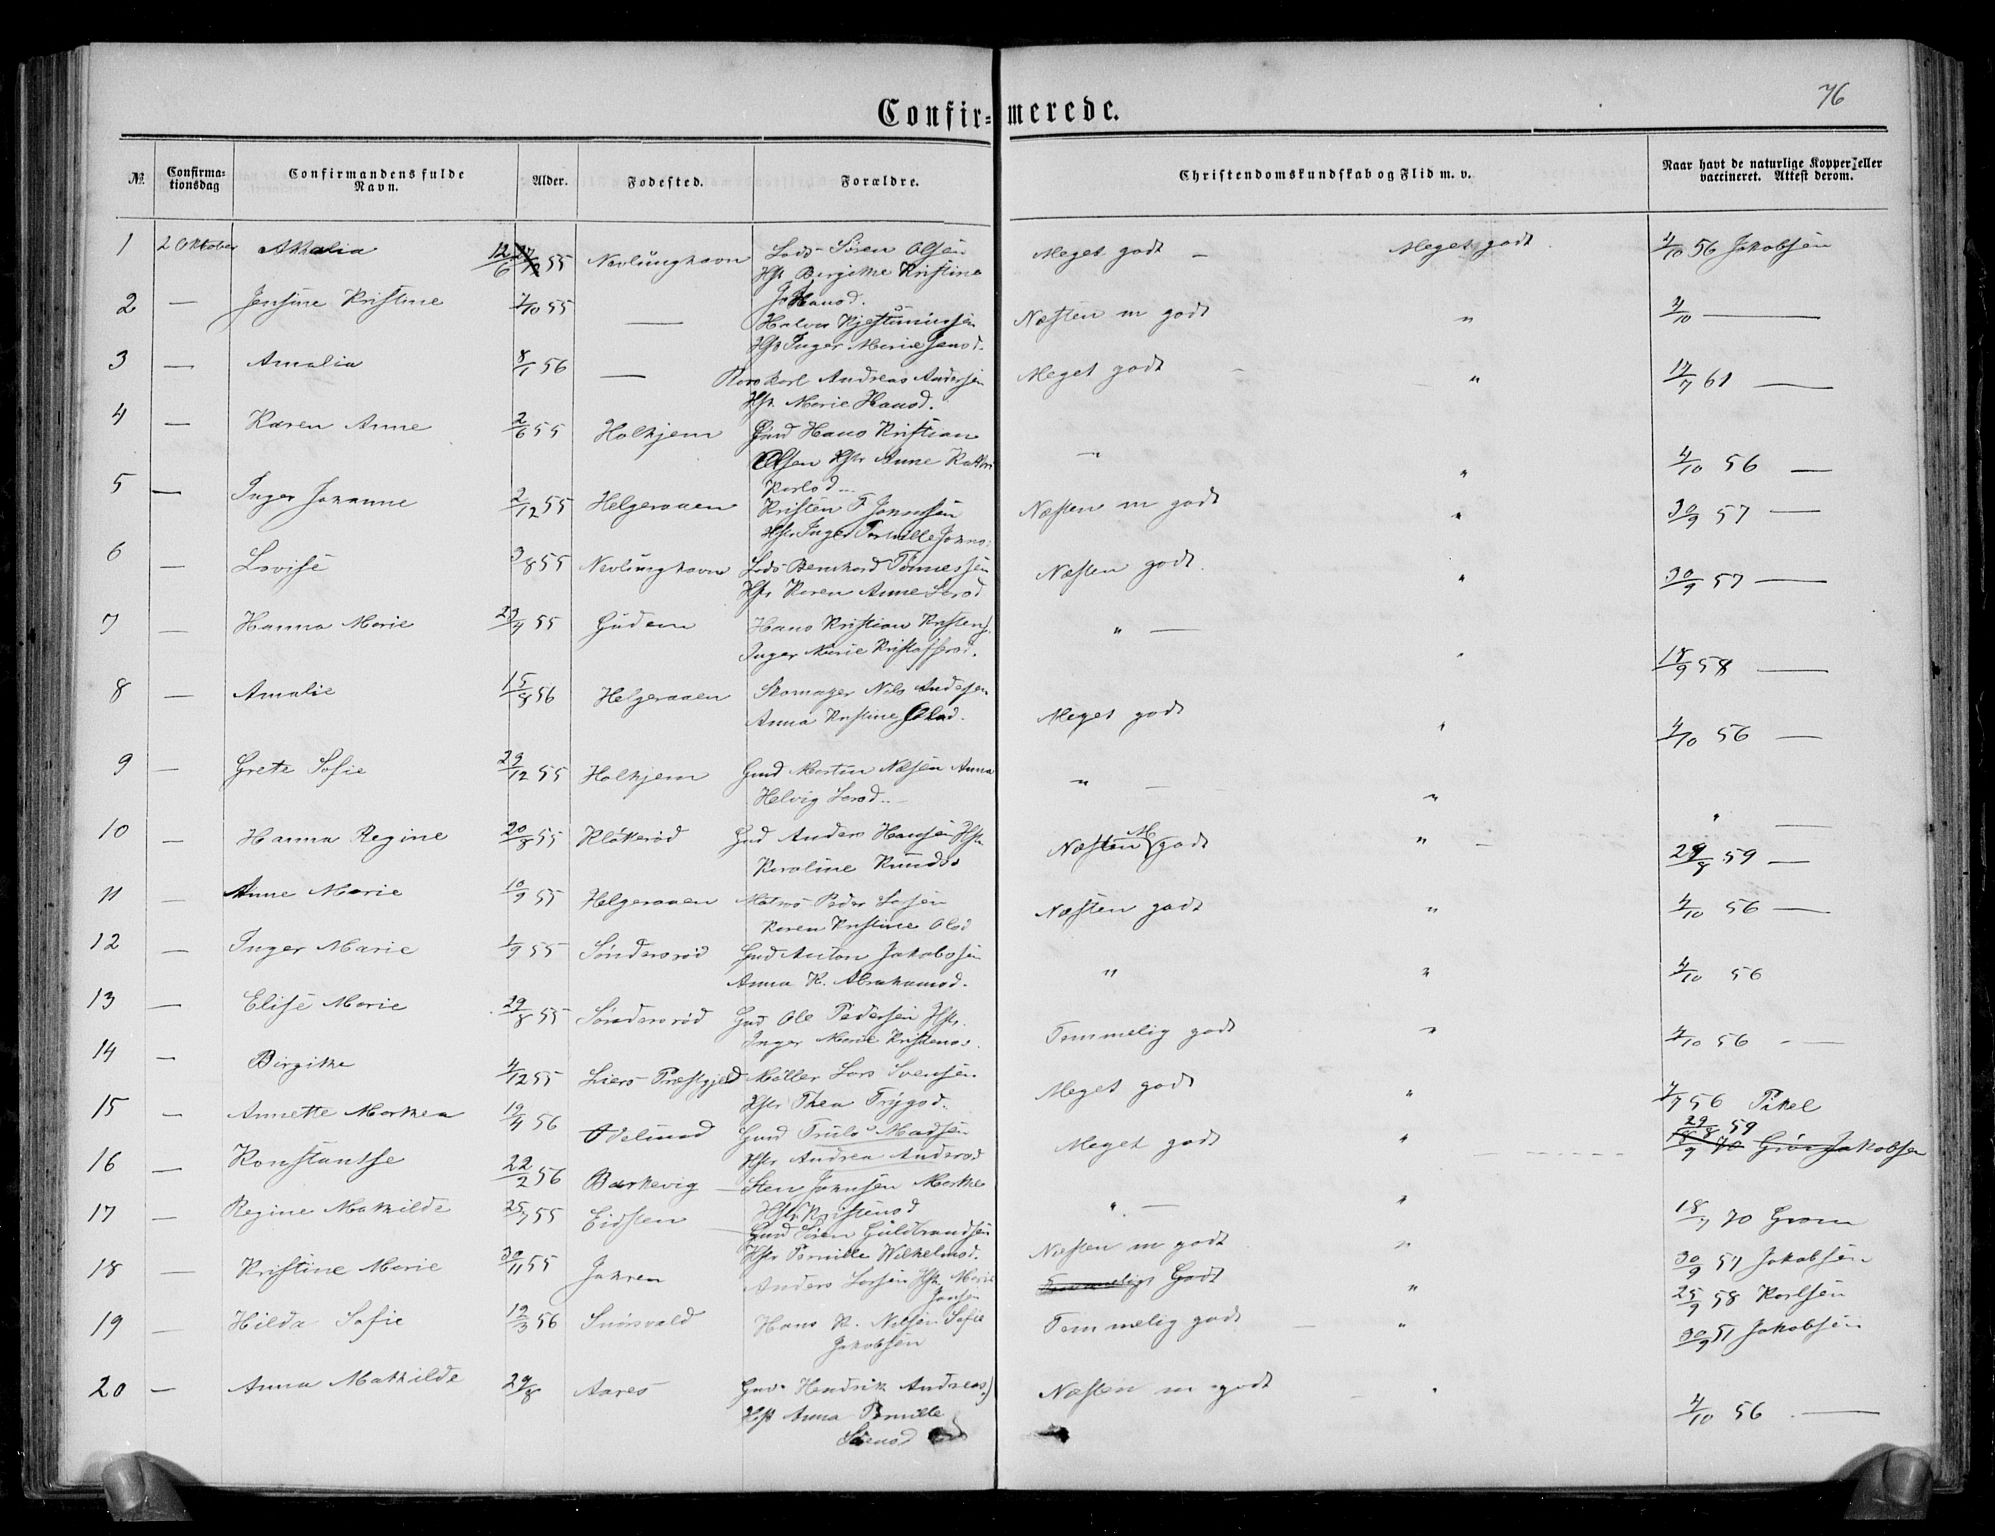 76
Confirmerede.
No. Confirmationsdag Confirmandens fulde Navn. Alder. Fodested. Forældre. Christendomskundskab og Flid m. v. Naar havt de naturlige Kopper eller vaccineret. Attest derom.
1 2 Oktober Athalia 12/6 55 Nevlunghavn Lods Søren Olsen Meget godt – Meget godt 4/10 56 Jakobsen
Hst Birgithe Kristine
2 — Jensine Kristine 7/10 55 — J Hansd. Næsten m godt " 4/10 —
Halvor
Hst Inger Marie
3 — Amalia 8/1 56 — Karl Andreas Andersen Meget godt – " 17/7 61 —
Hst. Marie Hansd.
4 — Karen Anne 2/6 55 Holkjem Gmd Hans Kristian " " 4/10 56 —
Olsen Hstr Anne
Karlsd
5 — Inger Johanne 2/12 55 Helgeraaen Kristen F Johnsen Næsten m godt " 30/9 57 —
Hstr Inger Pernille Johns
6 — Lovise 3/8 55 Nevlunghavn Lods Bernhard Tønnessen Næsten godt. " 30/9 57 —
Hstr Karen Anne Larsd
7 — Hanna Marie 29/4 55 Gudem Hans Kristian Kristens " — " 18/9 58 —
Inger Marie Kristoffersd.
8 — Amalie 15/8 56 Helgeraaen Skomager Nils Andersen Meget godt " 4/10 56 —
Anna Kristine Olsd.
9 — Grete Sofie 29/12 55 Holkjem Gmd Martin Nilsen Anna " — " " —
Helvig Larsd.
10 — Hanna Regine 20/8 55 Kløkerød Gmd Anders Hansen Hstr Næsten M godt " – 29/8 59 —
Karoline Knudsd
11 — Anne Marie 10/9 55 Helgeraaen Matros Peder Larsen Næsten godt " 4/10 56 —
Karen Kristine Olsd
12 — Inger Marie 1/9 55 Søndersrød Gmd Anton Jakobsen " " 4/10 56
Anna K. Abrahamsd.
13 — Elise Marie 29/8 55 Søndersrød Gmd Ole Pedersen Hstr. Temmelig godt " 4/10 56 —
Inger Marie Kristensd.
14 — Birgithe 4/12 55 Liers Præstgjeld Møller Lars Svensen Meget godt " 7/7 56 Pihel
Hstr Thea Trygsd.
15 — Annette Marthea 19/4 56 Ødelund Gmd Truls Madsen Meget godt " 29/8 59
Hstr Andrea Andersd 18/9 70 Grøn Jakobsen
16 — Konstantse 22/2 56 Barkevig — Sten Johnsen Marthe " — " 18/7 70 Grøn
Hstr Kristensd
17 — Regine Mathilde 25/7 55 Eidsten — Gmd Søren Guldbrandsen Næsten m godt " 30/9 57 Jakobsen
Hstr Pernille Wilhelmsd.
18 — Kristine Marie 30/11 55 Jahren Anders Larsen Hstr Marie Temmelig Godt " 25/9 58 Karlsen
Jonsen
19 — Hilda Sofie 19/3 56 Snirsvold Hans K. Nilsen Sofie Temmelig godt — " 30/9 57 Jakobsen
Jakobsen
20 — Anna Mathilde 29/8 Aares Gmd Hendrik Andreas Næsten m godt – " 4/10 56 —
Hst Anna Pernille
Sørensd